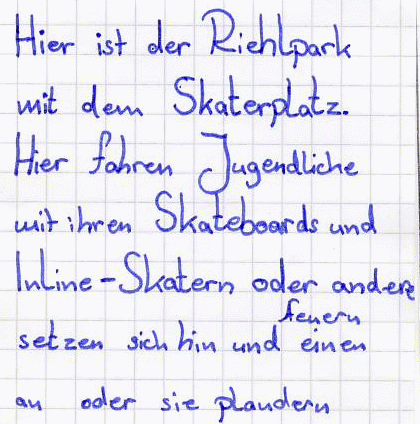 Hier ist der Riehlpark
mit dem Skaterplatz.
Hier fahren Jugendliche
mit ihren Skateboards und
Inline-Skatern oder andere
feuern
setzen sich hin und einen
an oder sie plaudern